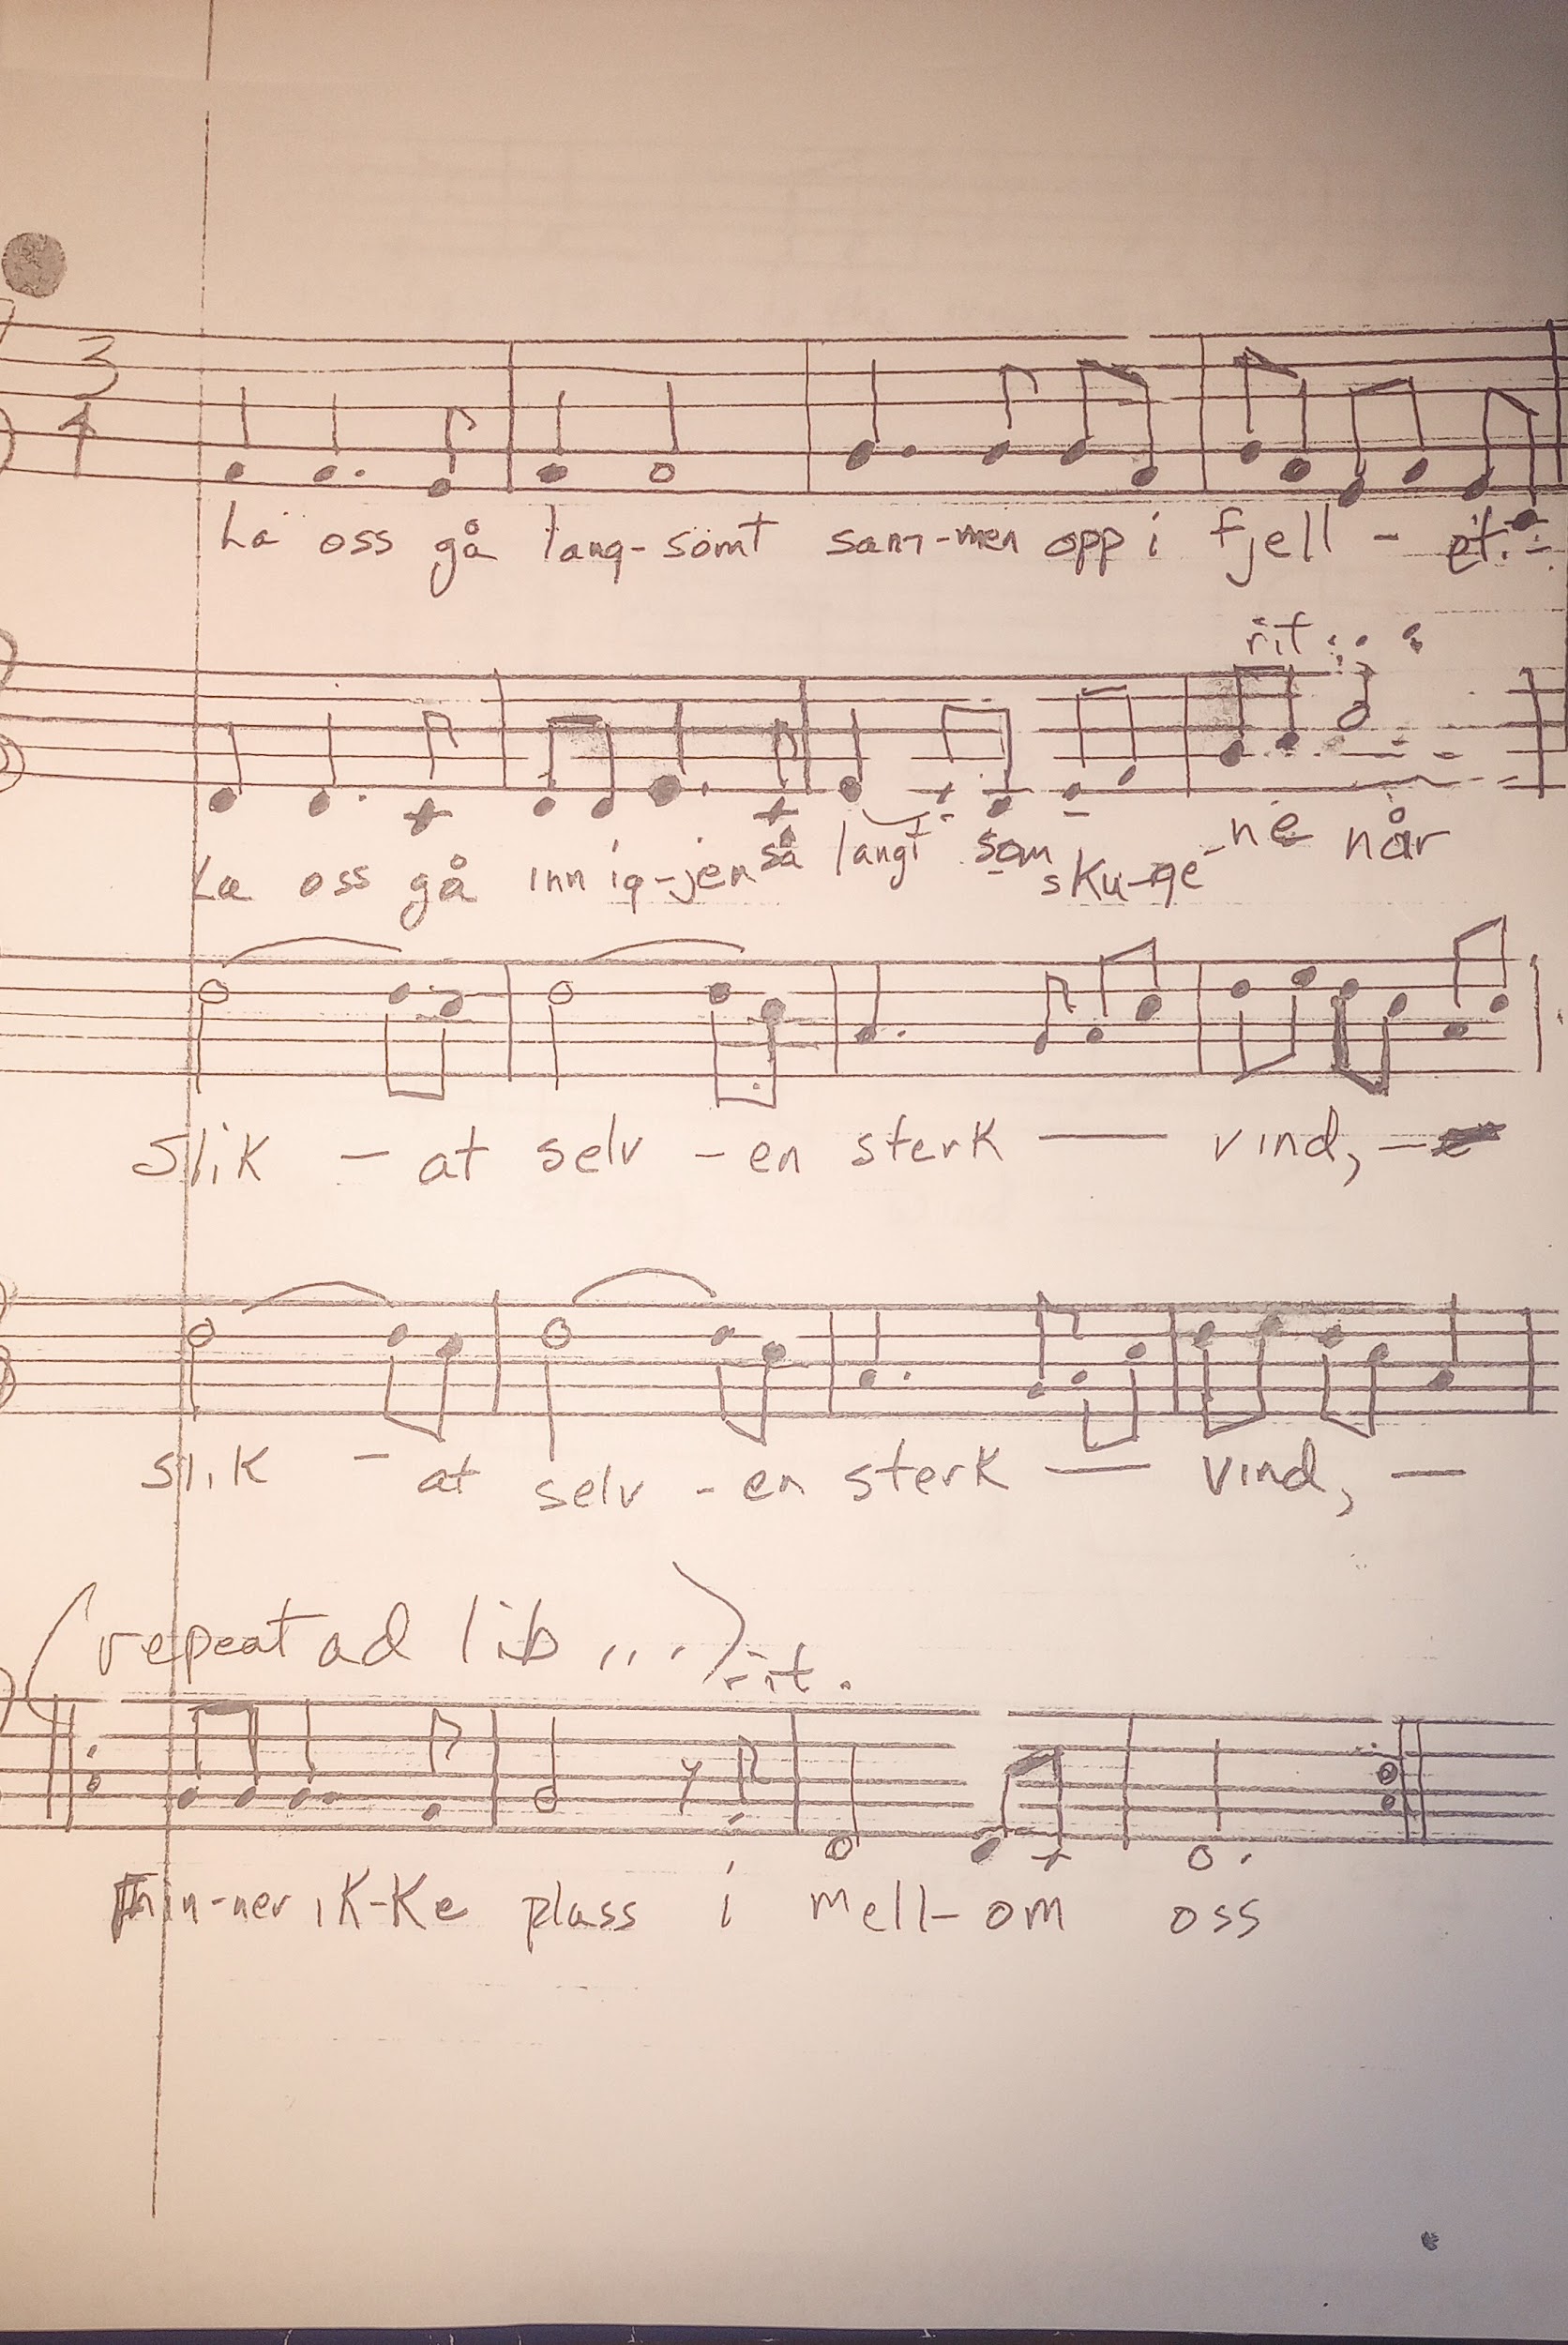 3
4
La oss gå lang-somt sam-men opp i fjell - et.
rit...
La oss gå inn ig-jen så langt som sku-ge-ne når
Slik - at selv - en sterk — vind, -
slik - at selv - en sterk — vind, —
(repeat ad lib ...)
rit.
Fin-ner ik-ke plass i mell-om oss